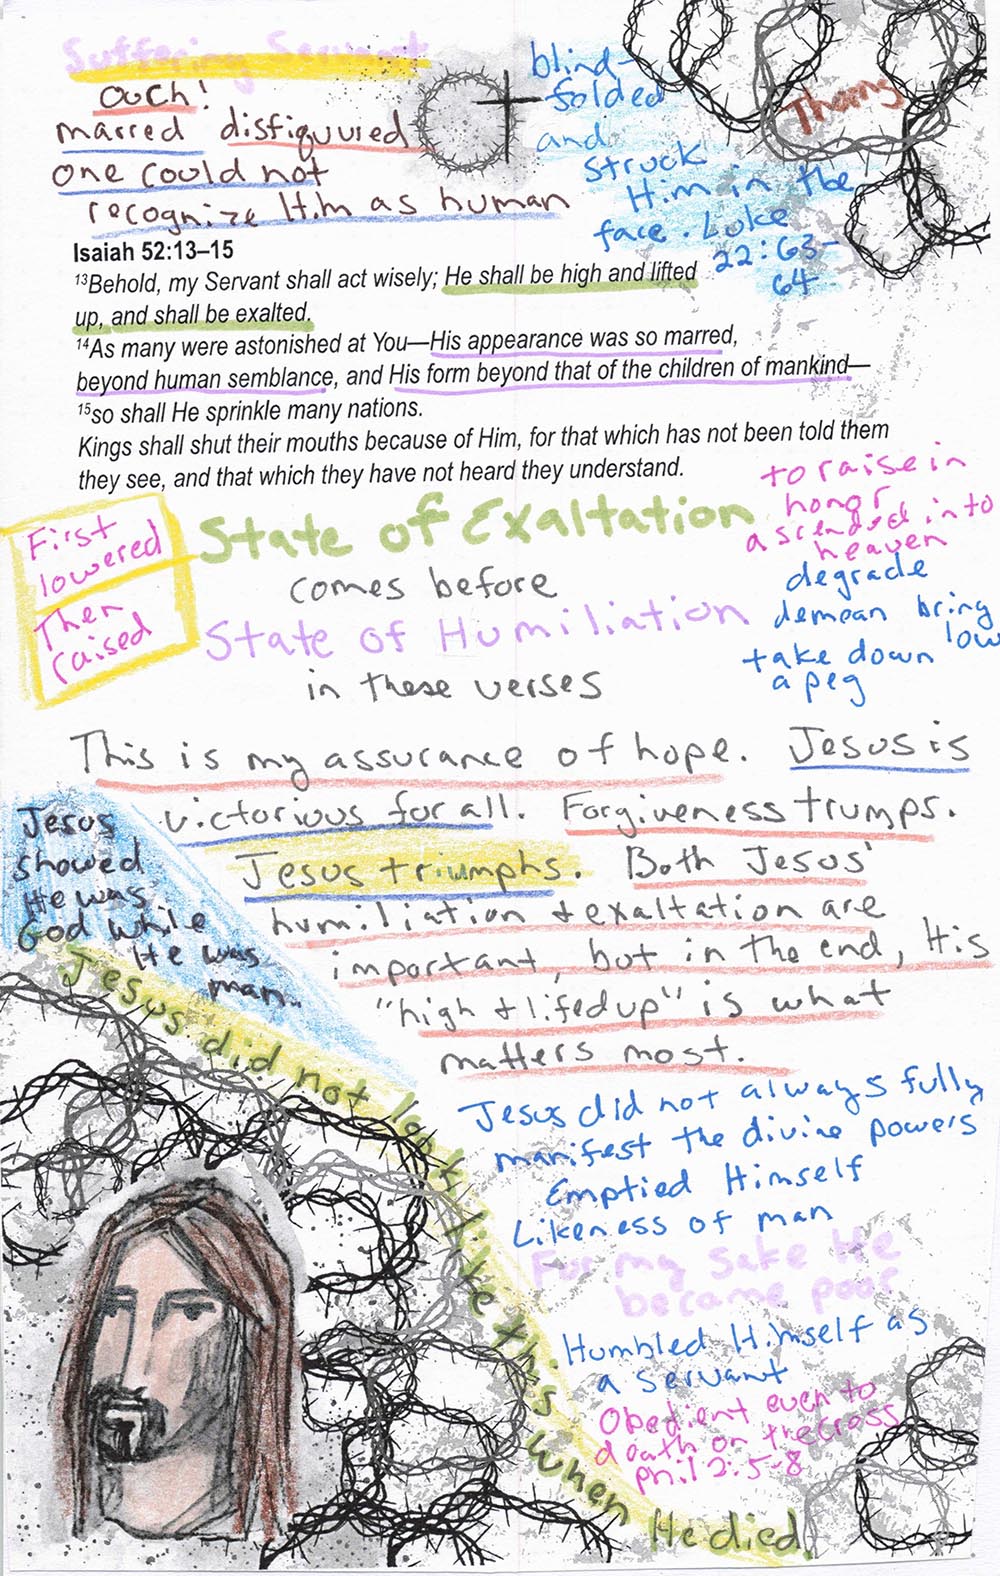 Suffering Servant
ouch!
marred disfiguured
one could not
recognize Him as human
blind-
folded
and
struck
Him in the
face. Luke
22:63-
64
Thorns
Isaiah 52:13–15
13Behold, my Servant shall act wisely; He shall be high and lifted
up, and shall be exalted.
14As many were astonished at You—His appearance was so marred,
beyond human semblance, and His form beyond that of the children of mankind—
15so shall He sprinkle many nations.
Kings shall shut their mouths because of Him, for that which has not been told them
they see, and that which they have not heard they understand.
First
lowered
Then
raised
State of Exaltation
comes before
State of Humiliation
in these verses
to raise in
honor
ascended into
heaven
degrade
demean bring
low
take down
a peg
This is my assurance of hope. Jesus is
victorious for all. Forgiveness trumps.
Jesus triumphs. Both Jesus'
humiliation & exaltation are
important, but in the end, His
"high & lifed up" is what
matters most.
Jesus
showed
He was
God while
He was
man.
Jesus did not look like this when He died.
Jesus did not always fully
manifest the divine powers
Emptied Himself
Likeness of man
For my sake He
became poor
Humbled Himself as
a servant
Obedient even to
death on the cross
phil 2:5-8